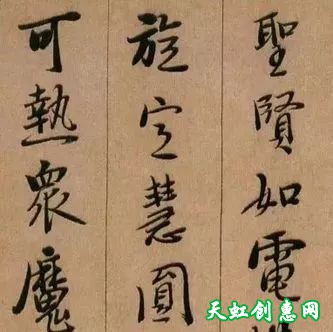 聖賢如電
旋定慧圓
可執衆魔
天虹创惠网